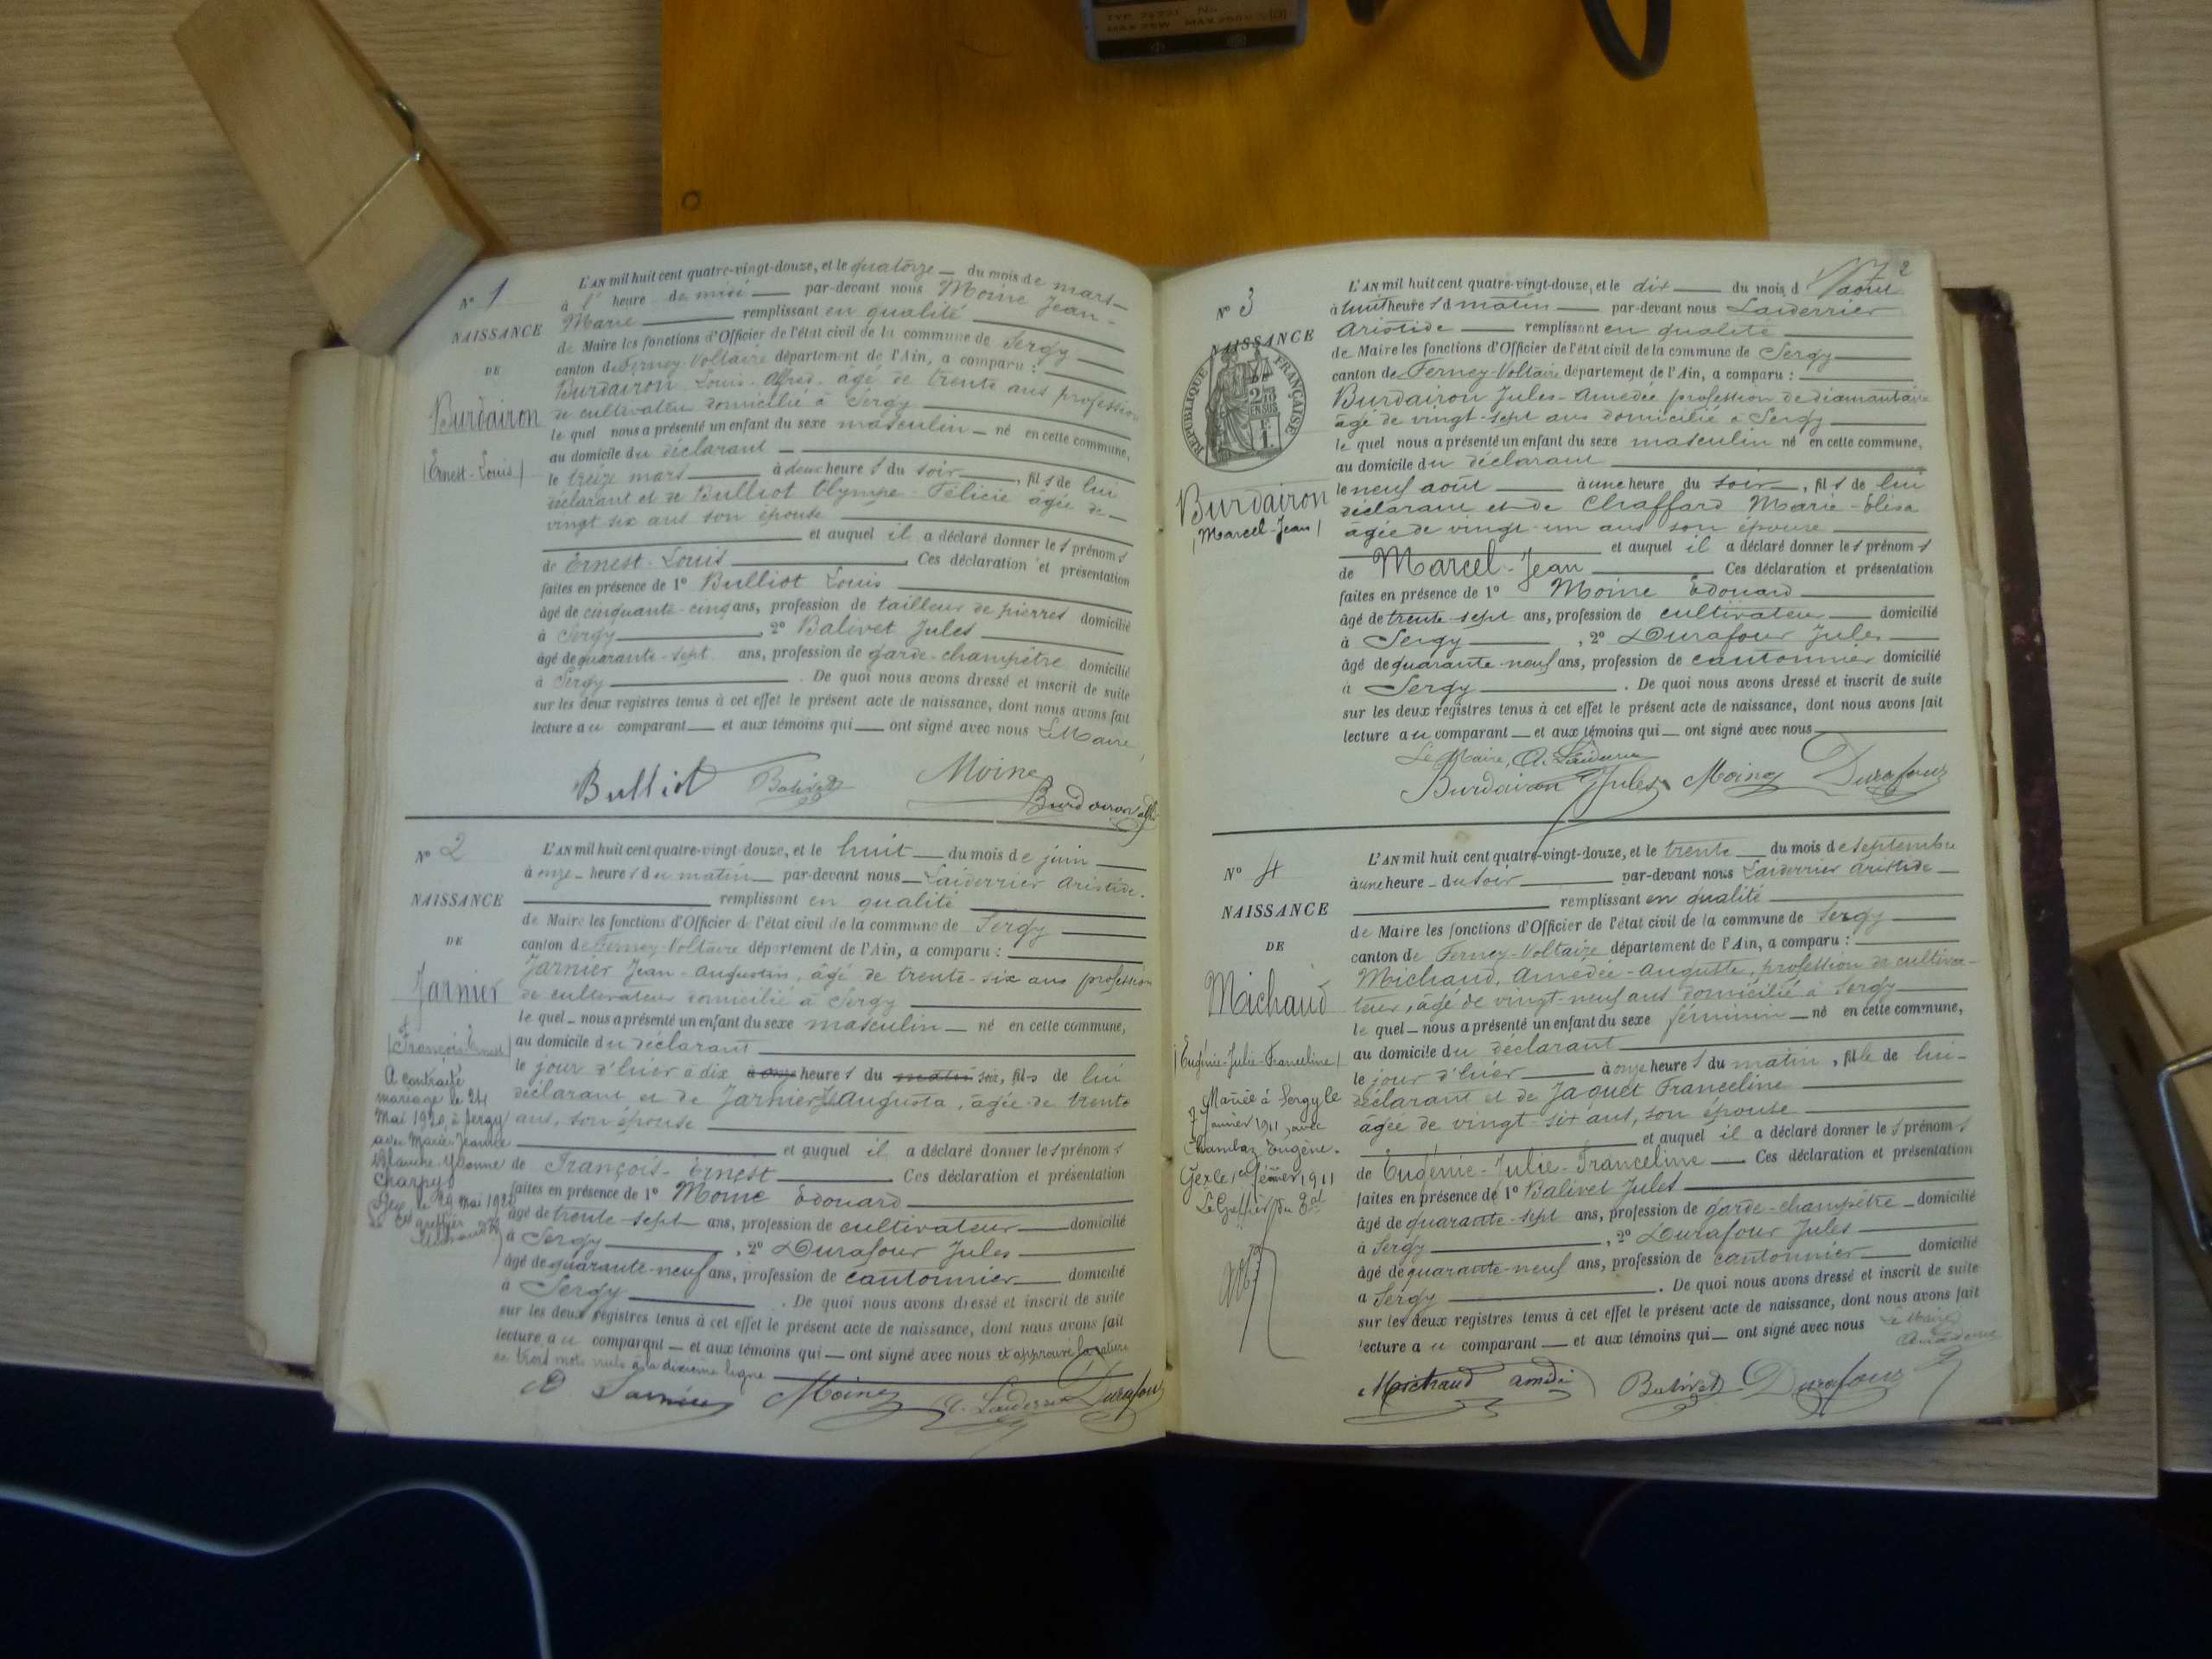 N° 1
NAISSANCE
DE
Burdairon
(Ernest-Louis)
L'AN mil huit cent quatre-vingt-douze, et le quatorze du mois de mars
à l' heure de midi par-devant nous Moine Jean-
Marie remplissant en qualité
de Maire les fonctions d'Officier de l'état civil de la commune de Sergy
canton de Ferney-Voltaire département de l'Ain, a comparu :
Burdairon Louis-Alfred, âgé de trente ans profession
de cultivateur domicilié à Sergy
le quel nous a présenté un enfant du sexe masculin né en cette commune,
au domicile du déclarant
le treize mars à deux heures du soir, fils de lui
déclarant et de Bulliot Olympe-Félicie âgée de
vingt six ans son épouse
et auquel il a déclaré donner les prénoms
de Ernest-Louis Ces déclaration et présentation
faites en présence de 1° Bulliot Louis
âgé de cinquante-cinq ans, profession de tailleur de pierres domicilié
à Sergy, 2° Balivet Jules
âgé de quarante-sept ans, profession de garde-champêtre domicilié
à Sergy. De quoi nous avons dressé et inscrit de suite
sur les deux registres tenus à cet effet le présent acte de naissance, dont nous avons fait
lecture au comparant et aux témoins qui ont signé avec nous Le Maire
Bulliot Balivet Moine
Burdairon
N° 2
NAISSANCE
DE
Jarnier
(François Ernest)
A contracté
mariage le 24
Mai 1920, à Sergy
avec Marie-Jeanne
Blanche-Yvonne
Charpy
Gex, le 29 Mai 1920
L'AN mil huit cent quatre-vingt-douze, et le huit du mois de juin
à onze heures du matin par-devant nous Laiderrier Aristide
remplissant en qualité
de Maire les fonctions d'Officier de l'état civil de la commune de Sergy
canton de Ferney-Voltaire département de l'Ain, a comparu :
Jarnier Jean-Augustin, âgé de trente-six ans profession
de cultivateur domicilié à Sergy
le quel nous a présenté un enfant du sexe masculin né en cette commune,
au domicile du déclarant
le jour d'hier à dix à onze heures du matin soir, fils de lui
déclarant et de Jarnier Augusta, âgée de trente
ans, son épouse
et auquel il a déclaré donner les prénoms
de François-Ernest Ces déclaration et présentation
faites en présence de 1° Moine Edouard
âgé de trente sept ans, profession de cultivateur domicilié
à Sergy, 2° Durafour Jules
âgé de quarante-neuf ans, profession de cantonnier domicilié
à Sergy. De quoi nous avons dressé et inscrit de suite
sur les deux registres tenus à cet effet le présent acte de naissance, dont nous avons fait
lecture au comparant et aux témoins qui ont signé avec nous et approuvé la rature
de trois mots nuls à la dixième ligne
Jarnier Moine A. Laiderrier Durafour
2
N° 3
NAISSANCE
DE
RÉPUBLIQUE FRANÇAISE
2/10 EN SUS
1 F
Burdairon
(Marcel-Jean)
L'AN mil huit cent quatre-vingt-douze, et le dix du mois d'août
à huit heures du matin par-devant nous Laiderrier
Aristide remplissant en qualité
de Maire les fonctions d'Officier de l'état civil de la commune de Sergy
canton de Ferney-Voltaire département de l'Ain, a comparu :
Burdairon Jules-Amédée profession de diamantaire
âgé de vingt-sept ans domicilié à Sergy
le quel nous a présenté un enfant du sexe masculin né en cette commune,
au domicile du déclarant
le neuf août à une heure du soir, fils de lui
déclarant et de Chaffard Marie-Elisa
âgée de vingt-un ans son épouse
et auquel il a déclaré donner les prénoms
de Marcel-Jean Ces déclaration et présentation
faites en présence de 1° Moine Edouard
âgé de trente-sept ans, profession de cultivateur domicilié
à Sergy, 2° Durafour Jules
âgé de quarante-neuf ans, profession de cantonnier domicilié
à Sergy. De quoi nous avons dressé et inscrit de suite
sur les deux registres tenus à cet effet le présent acte de naissance, dont nous avons fait
lecture au comparant et aux témoins qui ont signé avec nous
Le Maire, A. Laiderrier
Burdairon Jules Moine Durafour
N° 4
NAISSANCE
DE
Michaud
(Eugénie-Julie-Franceline)
Mariée à Sergy le
7 janvier 1911, avec
Chambaz Eugène.
Gex le 1911
Le Greffier du Bal
L'AN mil huit cent quatre-vingt-douze, et le trente du mois de septembre
à une heure du soir par-devant nous Laiderrier Aristide
remplissant en qualité
de Maire les fonctions d'Officier de l'état civil de la commune de Sergy
canton de Ferney-Voltaire département de l'Ain, a comparu :
Michaud, Amédée-Auguste, profession de cultiva-
teur, âgé de vingt-neuf ans domicilié à Sergy
le quel nous a présenté un enfant du sexe féminin né en cette commune,
au domicile du déclarant
le jour d'hier à onze heures du matin, fille de lui-
déclarant et de Jaquet Franceline
âgée de vingt-six ans, son épouse
et auquel il a déclaré donner les prénoms
de Eugénie-Julie-Franceline Ces déclaration et présentation
faites en présence de 1° Balivet Jules
âgé de quarante-sept ans, profession de garde-champêtre domicilié
à Sergy, 2° Durafour Jules
âgé de quarante-neuf ans, profession de cantonnier domicilié
à Sergy. De quoi nous avons dressé et inscrit de suite
sur les deux registres tenus à cet effet le présent acte de naissance, dont nous avons fait
lecture au comparant et aux témoins qui ont signé avec nous Le Maire
Michaud amédé Balivet Durafour